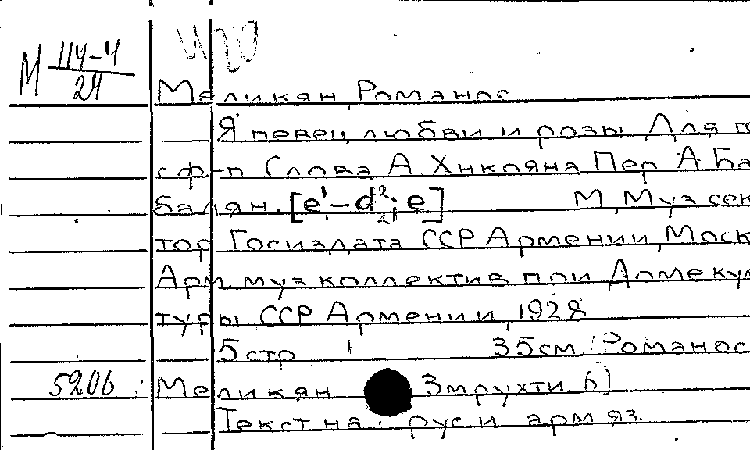 М 114-4
24
Меликян, Романос
Я певец любви и розы. Для
с ф-п. Слова А. Хнкояна. Пер. А. Ба
балян. [e¹-d²; e]
М., Муз. сек
тор Госиздата ССР Армении, Моск.
Арм. муз. коллектив при Доме куль
туры ССР Армении, 1928
5 стр. 35 см. (Романос
5206 Меликян Змрухти 6)
Текст на рус. и арм. яз.